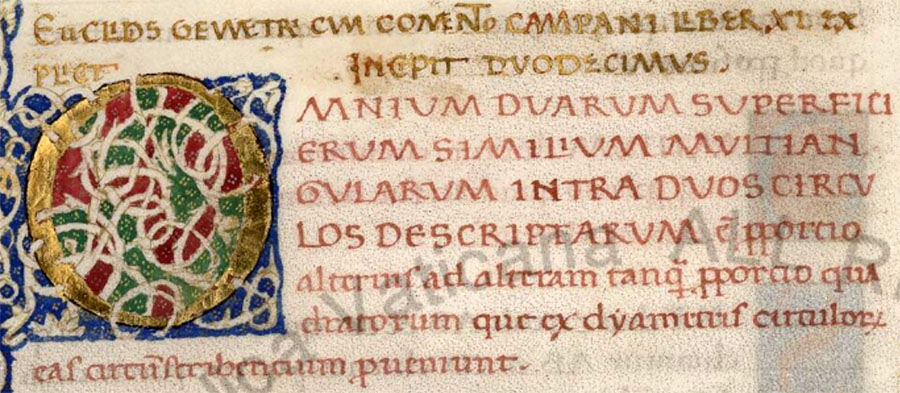 EUCLIDS GEWETR CUM COMENTO CAMPANI LIBER.XI EX
PLICT INCPIT DVODECIMVS.
OMNIUM DVARUM SUPERFICI
ERUM SIMILIUM MULTIAN
GVLARUM INTRA DUOS CIRCU
LOS DESCRIPTARUM ē ꝓporcio
alterius ad alteram tanq̄ ꝓporcio qua
dratorum que ex dyametris circuloꝝ
eas circūscribencium ꝓueniunt.
lica Vaticana ALL R